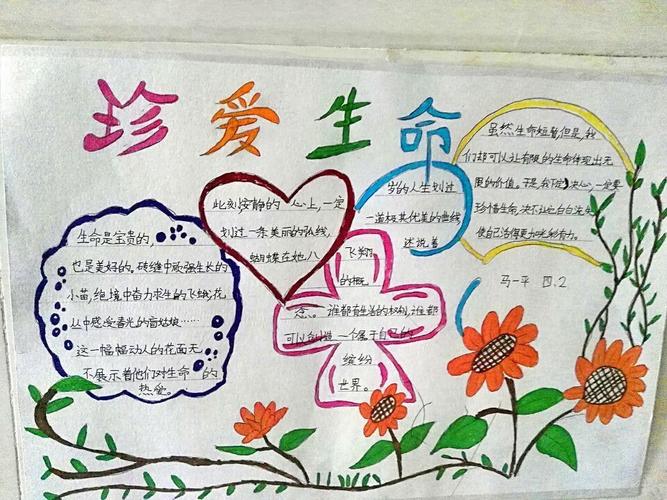 珍爱生命
生命是宝贵的,
也是美好的。砖缝中顽强生长的
小苗,绝境中奋力求生的飞蛾,花
丛中感受春光的盲姑娘……
这一幅幅动人的画面无
不展示着他们对生命的
热爱。
此刻安静的心上,一定
划过一条美丽的弘线,
蝴蝶在她八
岁的人生划过
一道极其优美的曲线,
述说着
飞翔
的概
念。谁都有生活的权利,谁都
可以创造一个属于自己的
缤纷
世界。
虽然生命短暂,但是,我
们却可以让有限的生命体现出无
限的价值。于是,我下定决心,一定要
珍惜生命,决不让它白白流失,
使自己活得更加光彩有力。
马一平 四.2